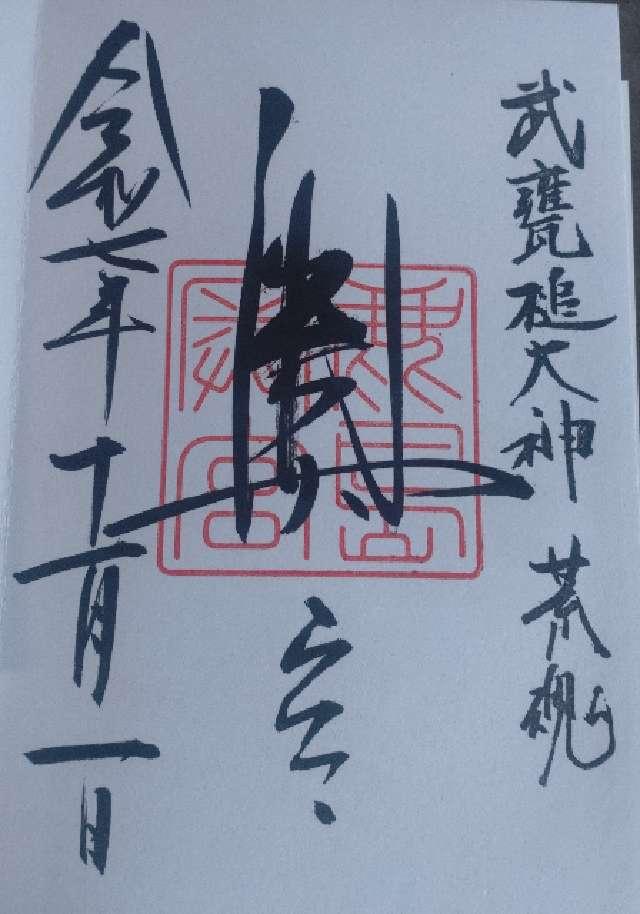 武甕槌大神 荒魂
奥宮
鹿島
奥宮
令和七年十一月一日